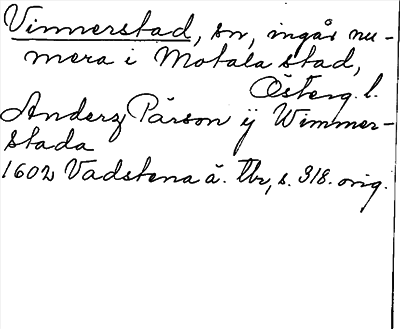 Vinnerstad, sn, ingår nu-
mera i Motala stad,
Österg. l.
Anderz Pärson ÿ Wimmer-
stada
1602 Vadstena ä. Tbr, s. 318. orig.